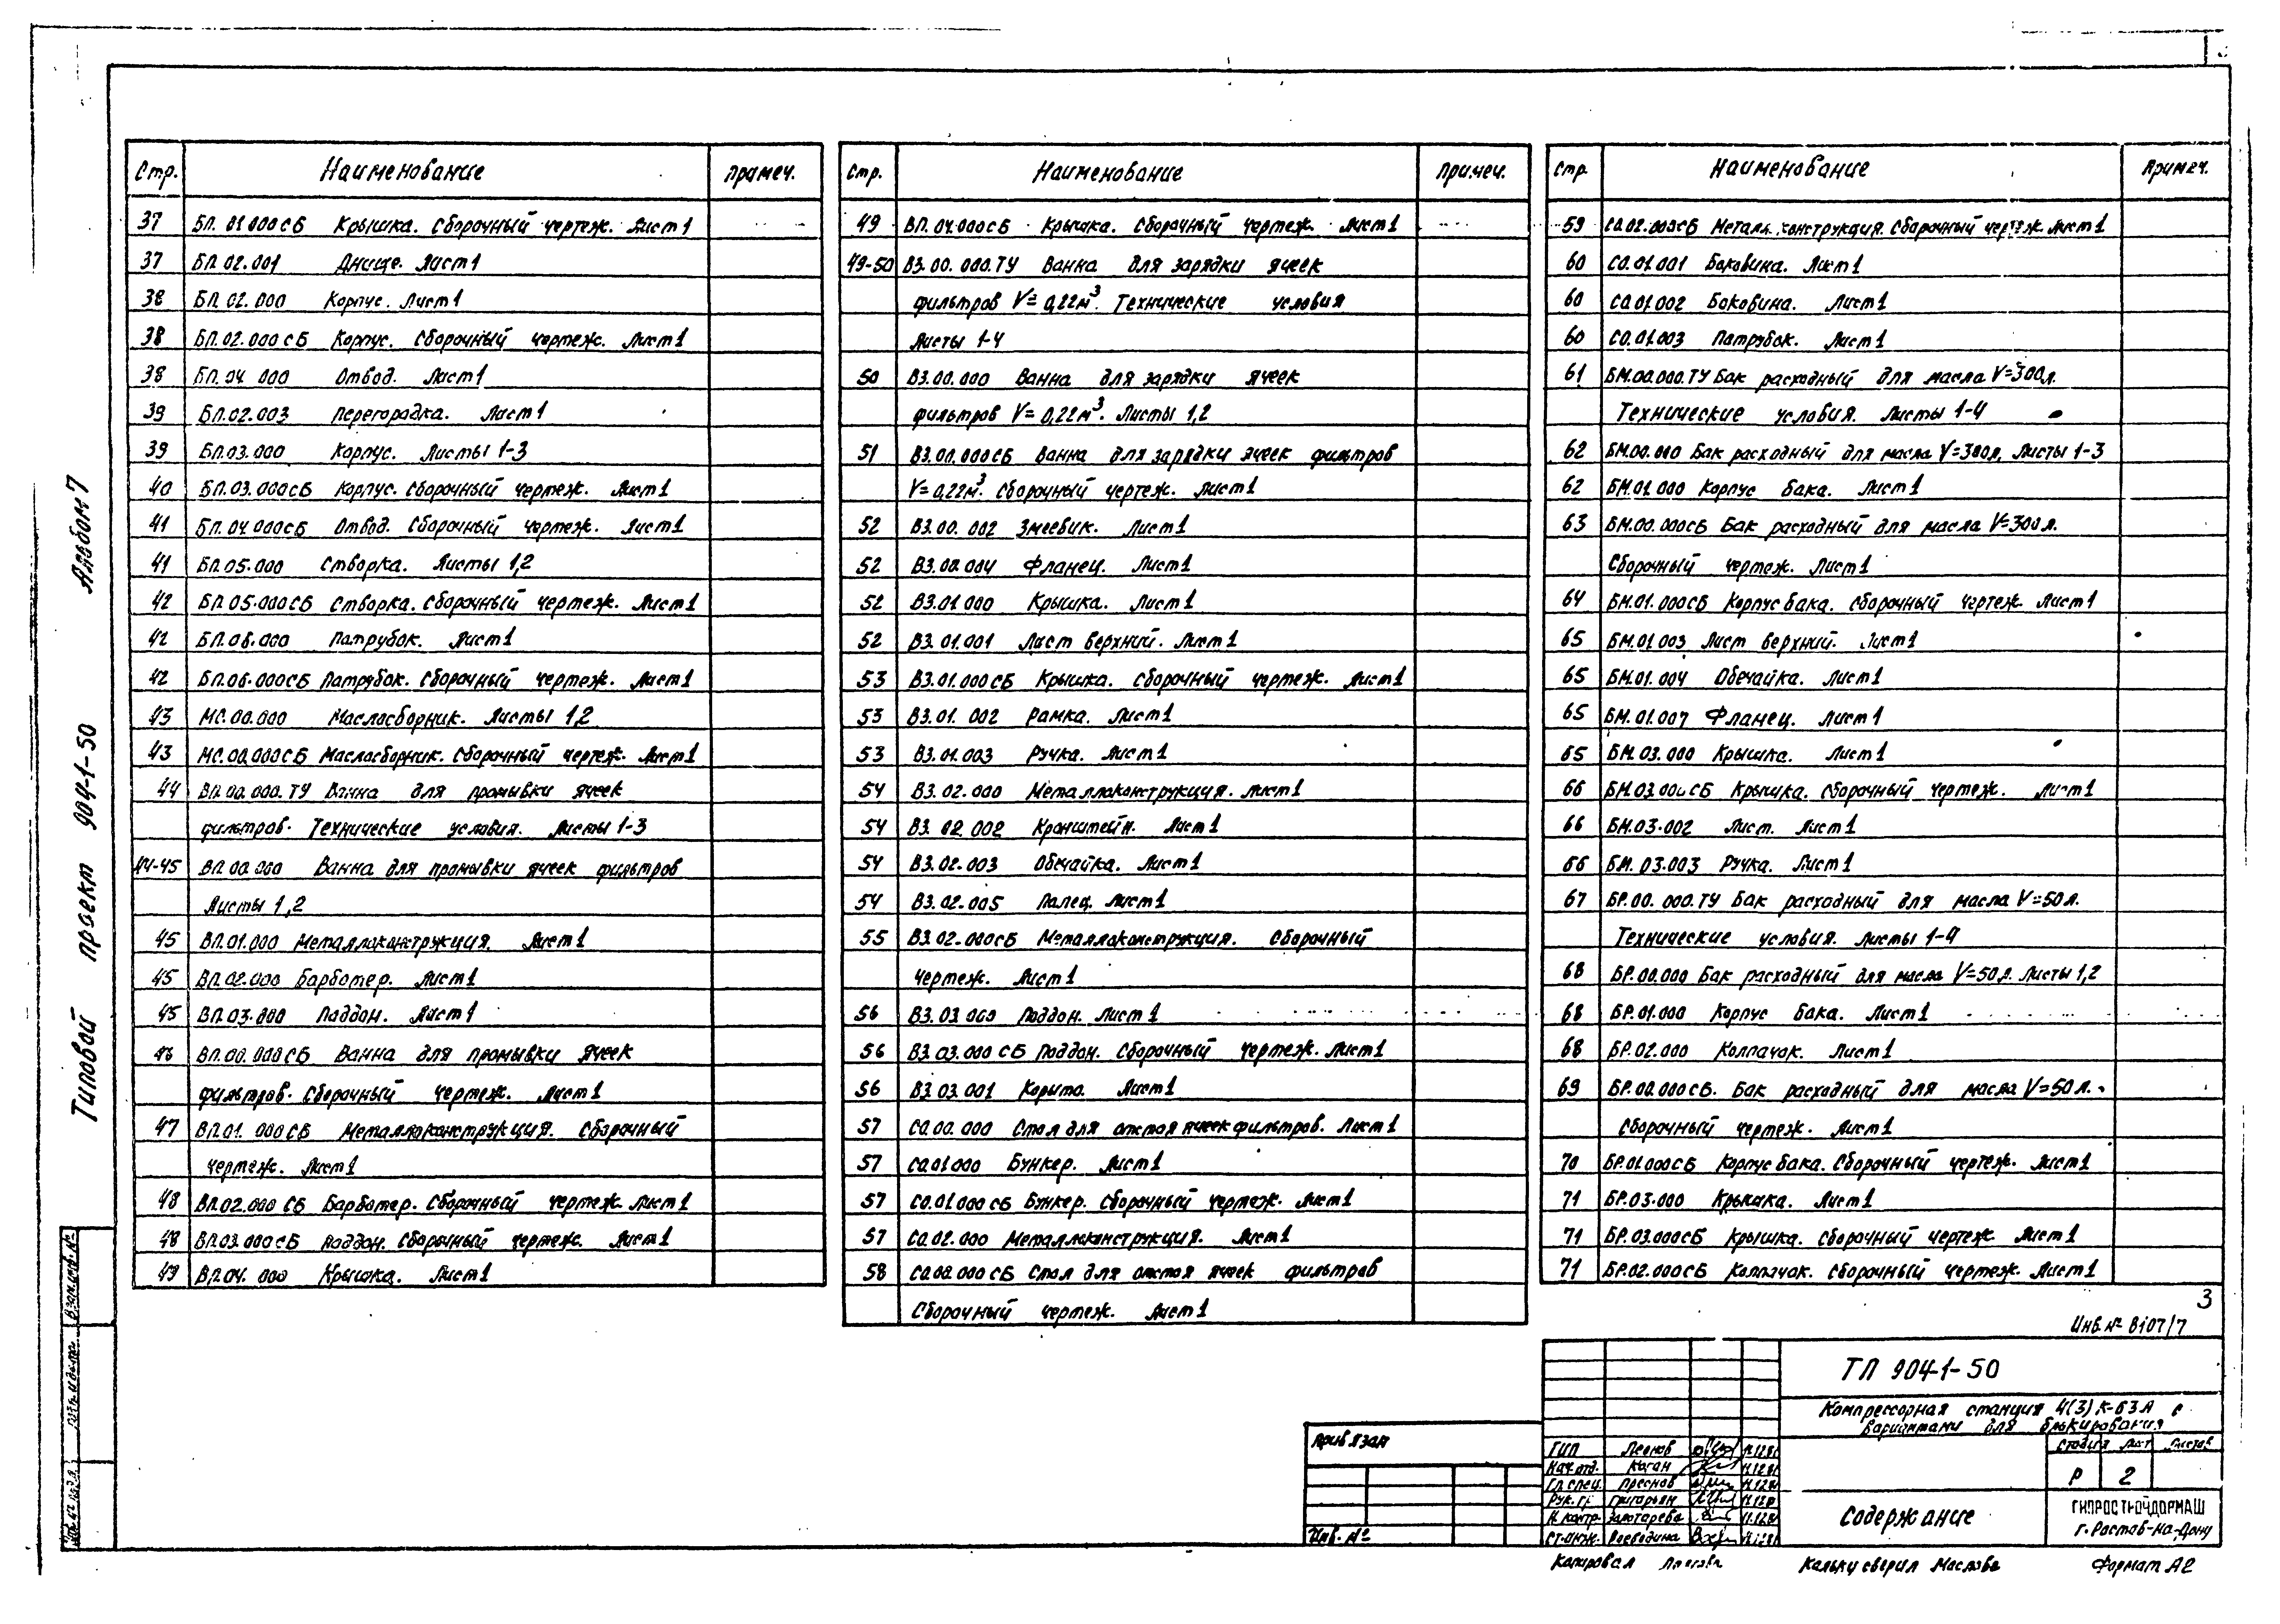 Стр. Наименование Примеч.
37 БП.01.000СБ Крышка. Сборочный чертеж. Лист 1
37 БП.02.001 Днище. Лист 1
38 БП.02.000 Корпус. Лист 1
38 БП.02.000СБ Корпус. Сборочный чертеж. Лист 1
38 БП.04.000 Отвод. Лист 1
39 БП.02.003 Перегородка. Лист 1
39 БП.03.000 Корпус. Листы 1-3
40 БП.03.000СБ Корпус. Сборочный чертеж. Лист 1
41 БП.04.000СБ Отвод. Сборочный чертеж. Лист 1
41 БП.05.000 Створка. Листы 1,2
42 БП.05.000СБ Створка. Сборочный чертеж. Лист 1
42 БП.06.000 Патрубок. Лист 1
42 БП.06.000СБ Патрубок. Сборочный чертеж. Лист 1
43 МС.00.000 Маслосборник. Листы 1,2
43 МС.00.000СБ Маслосборник. Сборочный чертеж. Лист 1
44 ВП.00.000.ТУ Ванна для промывки ячеек
фильтров. Технические условия. Листы 1-3
44-45 ВП.00.000 Ванна для промывки ячеек фильтров
Листы 1,2
45 ВП.01.000 Металлоконструкция. Лист 1
45 ВП.02.000 Барботер. Лист 1
45 ВП.03.000 Поддон. Лист 1
46 ВП.00.000СБ Ванна для промывки ячеек
фильтров. Сборочный чертеж. Лист 1
47 ВП.01.000СБ Металлоконструкция. Сборочный
чертеж. Лист 1
48 ВП.02.000 СБ Барботер. Сборочный чертеж. Лист 1
48 ВП.03.000СБ Поддон. Сборочный чертеж. Лист 1
49 ВП.04.000 Крышка. Лист 1
Стр. Наименование Примеч.
49 ВП.04.000СБ Крышка. Сборочный чертеж. Лист 1
49-50 ВЗ.00.000.ТУ Ванна для зарядки ячеек
фильтров V=0,22м³. Технические условия
Листы 1-4
50 ВЗ.00.000 Ванна для зарядки ячеек
фильтров V=0,22м³. Листы 1,2
51 ВЗ.00.000СБ Ванна для зарядки ячеек фильтров
V=0,22м³. Сборочный чертеж. Лист 1
52 ВЗ.00.002 Змеевик. Лист 1
52 ВЗ.00.004 Фланец. Лист 1
52 ВЗ.01.000 Крышка. Лист 1
52 ВЗ.01.001 Лист верхний. Лист 1
53 ВЗ.01.000СБ Крышка. Сборочный чертеж. Лист 1
53 ВЗ.01.002 Рамка. Лист 1
53 ВЗ.01.003 Ручка. Лист 1
54 ВЗ.02.000 Металлоконструкция. Лист 1
54 ВЗ.02.002 Кронштейн. Лист 1
54 ВЗ.02.003 Обечайка. Лист 1
54 ВЗ.02.005 Палец. Лист 1
55 ВЗ.02.000СБ Металлоконструкция. Сборочный
чертеж. Лист 1
56 ВЗ.03.000 Поддон. Лист 1
56 ВЗ.03.000 СБ Поддон. Сборочный чертеж. Лист 1
56 ВЗ.03.001 Корыто. Лист 1
57 СО.00.000 Стол для отстоя ячеек фильтров. Лист 1
57 СО.01.000 Бункер. Лист 1
57 СО.01.000СБ Бункер. Сборочный чертеж. Лист 1
57 СО.02.000 Металлоконструкция. Лист 1
58 СО.00.000СБ Стол для отстоя ячеек фильтров
Сборочный чертеж. Лист 1
Стр. Наименование Примеч.
59 СО.02.000СБ Металлоконструкция. Сборочный чертеж. Лист 1
60 СО.01.001 Боковина. Лист 1
60 СО.01.002 Боковина. Лист 1
60 СО.01.003 Патрубок. Лист 1
61 БМ.00.000.ТУ Бак расходный для масла V=300л.
Технические условия. Листы 1-4
62 БМ.00.000 Бак расходный для масла V=300л. Листы 1-3
62 БМ.01.000 Корпус бака. Лист 1
63 БМ.00.000СБ Бак расходный для масла V=300л.
Сборочный чертеж. Лист 1
64 БМ.01.000СБ Корпус бака. Сборочный чертеж. Лист 1
65 БМ.01.003 Лист верхний. Лист 1
65 БМ.01.004 Обечайка. Лист 1
65 БМ.01.007 Фланец. Лист 1
65 БМ.03.000 Крышка. Лист 1
66 БМ.03.000СБ Крышка. Сборочный чертеж. Лист 1
66 БМ.03.002 Лист. Лист 1
66 БМ.03.003 Ручка. Лист 1
67 БР.00.000.ТУ Бак расходный для масла V=50л.
Технические условия. Листы 1-4
68 БР.00.000 Бак расходный для масла V=50л. Листы 1,2
68 БР.01.000 Корпус бака. Лист 1
68 БР.02.000 Колпачок. Лист 1
69 БР.00.000СБ. Бак расходный для масла V=50л.
Сборочный чертеж. Лист 1
70 БР.01.000СБ Корпус бака. Сборочный чертеж. Лист 1
71 БР.03.000 Крышка. Лист 1
71 БР.03.000СБ Крышка. Сборочный чертеж. Лист 1
71 БР.02.000СБ Колпачок. Сборочный чертеж. Лист 1
3
Инв.№ 8107/7
Типовой проект 904-1-50 Альбом 7
Взам.инв.№
Подп. и дата
Инв.№ подл.
Привязан
Инв. №
ТП 904-1-50
Компрессорная станция 4(3)К-63А с
вариантами для блокирования
Стадия Лист Листов
Р 2
ГИП Леонов
Нач.отд. Коган
Гл.спец. Преснов
Рук.гр. Григорьян
Н.контр. Золотарева
Ст.инж. Воеводина
Содержание
ГИПРОСТРОЙДОРМАШ
г.Ростов-на-Дону
Копировал
Кальку сверил Маслова
Формат А2